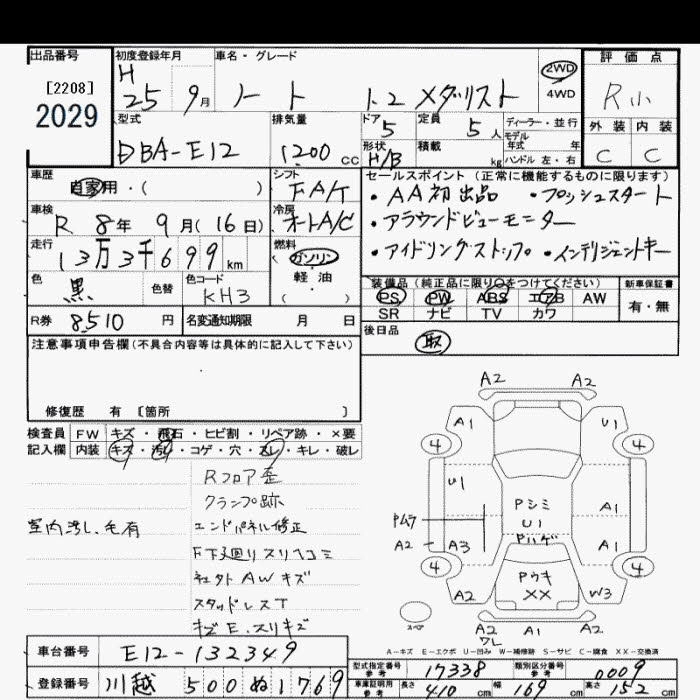 出品番号 初度登録年月 車名・グレード 評価点
[2208]
2029
H 25 9月 ノート 1.2 メダリスト 2WD 4WD R小
型式 排気量 ドア 5 定員 5人 ディーラー・並行 外装 内装
モデル年式 年
DBA-E12 1200cc 形状 H/B 積載 kg ハンドル 左・右 C C
車歴 シフト セールスポイント (正常に機能するものに限ります)
自家用・( ) FA/T ・AA初出品 ・プッシュスタート
車検 R 8年 9月(16日) 冷房 オートA/C ・アラウンドビューモニター
走行 13万3千699km 燃料 ガソリン ・アイドリングストップ ・インテリジェントキー
軽油
( )
色 黒 色替 色コード KH3 装備品 (純正品に限り○をつけてください) 新車保証書
PS PW ABS エアB AW 有・無
SR ナビ TV カワ
R券 8,510円 名変通知期限 月 日 後日品 取
注意事項申告欄(不具合内容等は具体的に記入して下さい)
修復歴 有 [箇所 ]
検査員 FW キズ・飛石・ヒビ割・リペア跡・×要
記入欄 内装 キズ・汚れ・コゲ・穴・スレ・キレ・破レ
Rフロア歪
クランプ跡
室内汚し、毛有 エンドパネル修正
F下廻りスリヘコミ
社外AWキズ
スタッドレスT
A2 A2
A1 U1
4 4
U1
Pシミ
A1
Pムケ U1
Pハゲ
A2 A3 A1
4 4
Pウキ
A2 XX W3
スペア A2 A1 A2
ワレ
A-キズ E-エクボ U-凹み W-補修跡 S-サビ C-腐食 XX-交換済
車台番号 E12-132349
型式指定番号 参考 17338 類別区分番号 参考 0009
登録番号 川越 500 ぬ 1769
車庫証明用 参考 長さ 410cm 幅 169cm 高さ 152cm